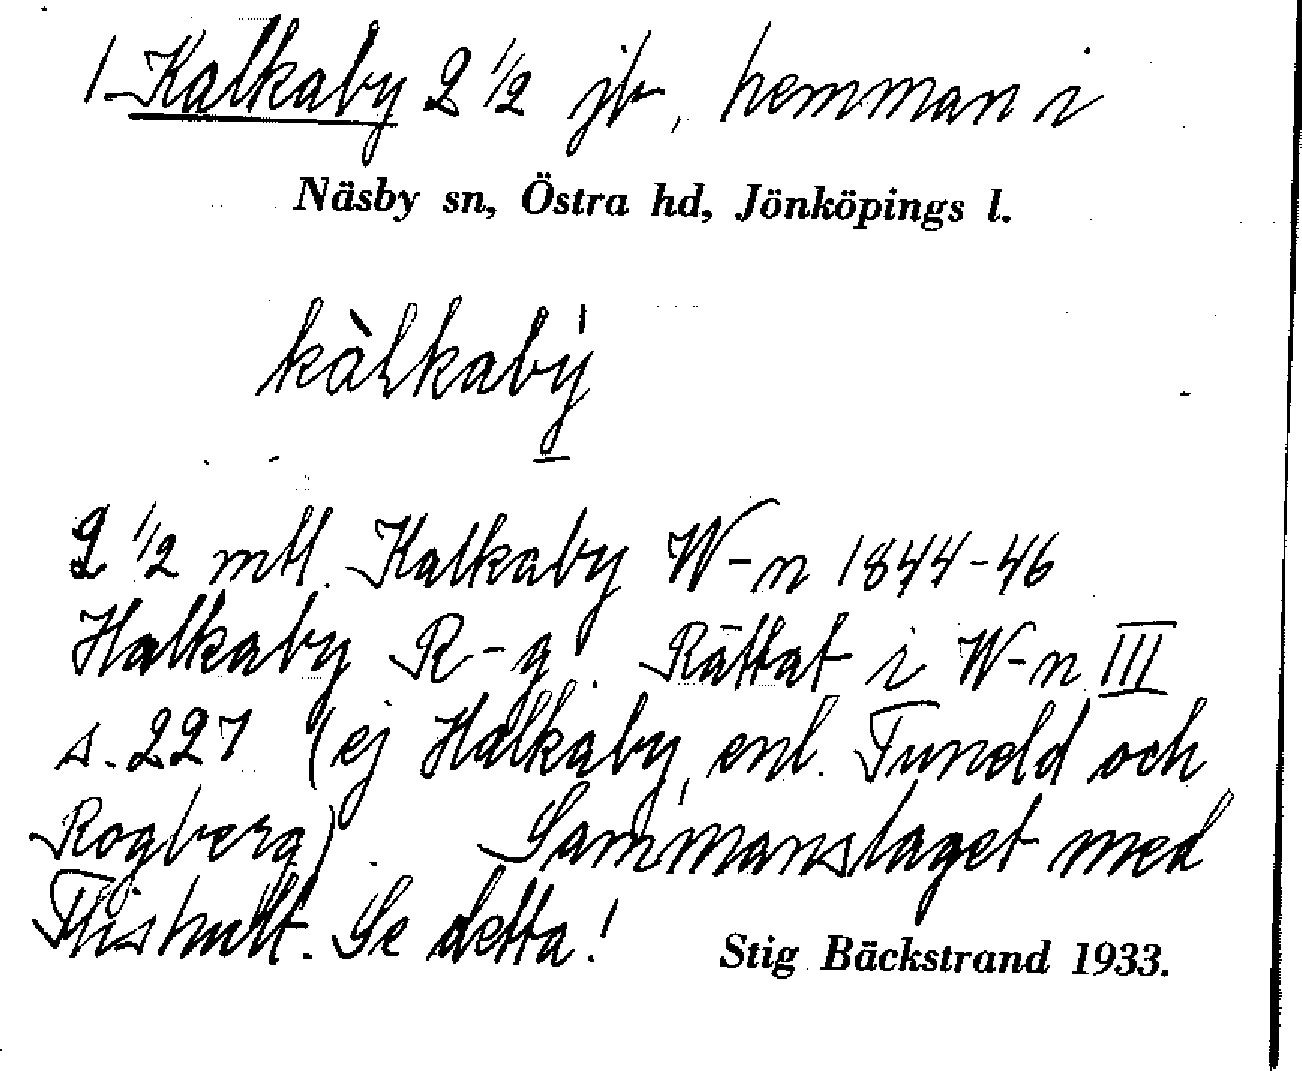 1. Kalkaby 2 1/2 jb, hemman i
Näsby sn, Östra hd, Jönköpings l.
kàlkabý
2 1/2 mtl. Kalkaby W-n 1844-46
Halkaby R-g. Rättat i W-n III
s. 227 (ej Halkaby, enl. Tuneld och
Rogberg). Sammanslaget med
Thishult. Se detta!
Stig Bäckstrand 1933.